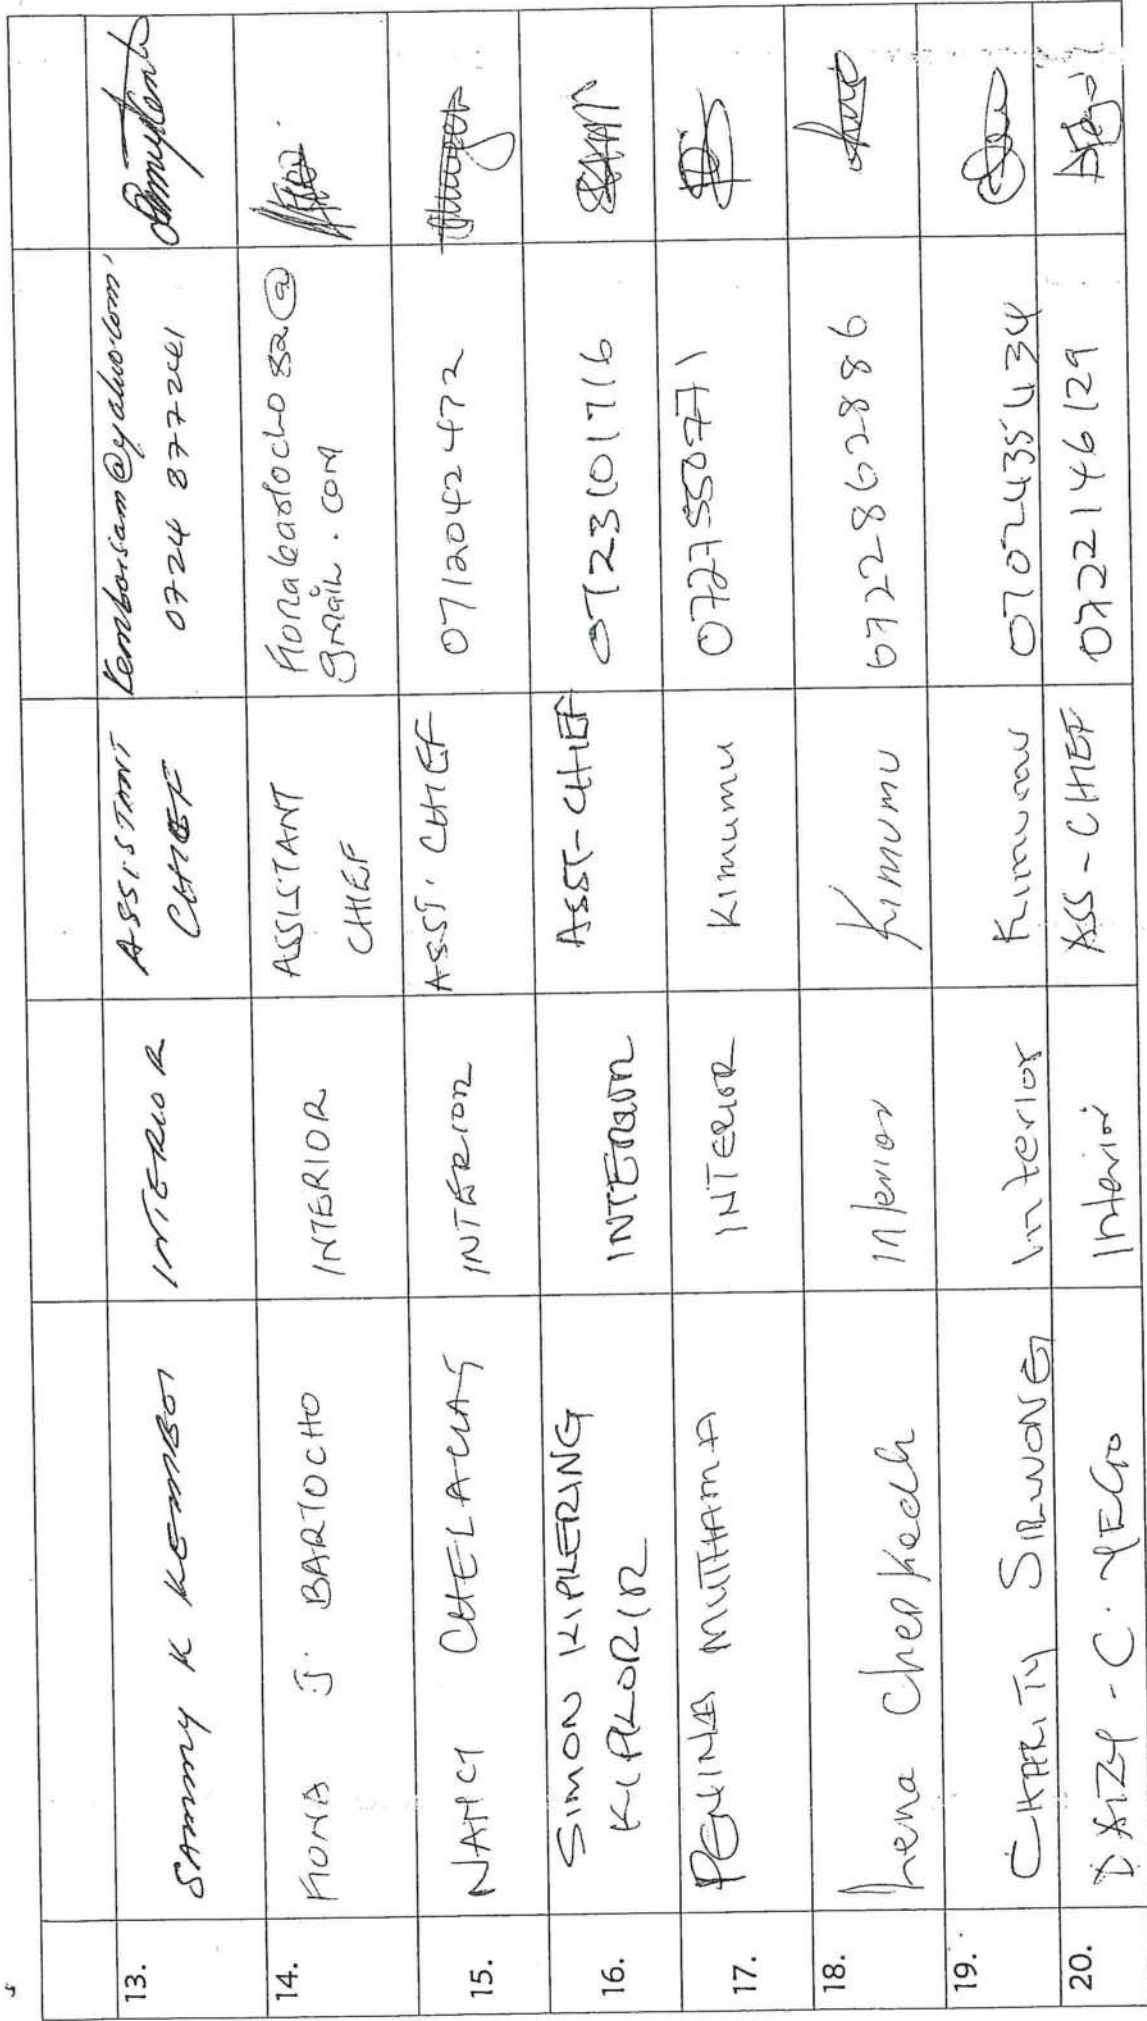 13.
SAMMY K KEMBOI
INTERIOR
ASSISTANT
CHIEF
Kemboisam@yahoo.com
0724 877241
14.
FIONA J. BARTOCHO
INTERIOR
ASSISTANT
CHIEF
fionabartocho82@
gmail.com
15.
NANCY CHELAGAT
INTERIOR
ASST. CHIEF
0712042472
16.
SIMON KIPKERING
KIPKORIR
INTERIOR
ASST-CHIEF
0723101716
17.
PENINA MUTHAMA
INTERIOR
Kimumu
0727550771
18.
Lena Chepkoech
Interior
Kimumu
0722862886
19.
CHARITY SIRWONEI
Interior
Kimumu
0702435434
20.
DAIZY - C. YEGO
Interior
ASS-CHIEF
0722146129